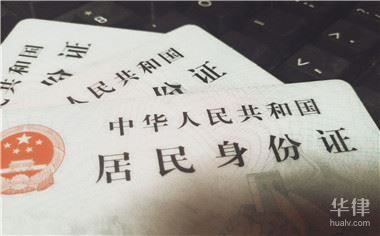 民共和国
份证
人民共和国
份证
中华人民共和国
居民身份证
华律
hualv.com